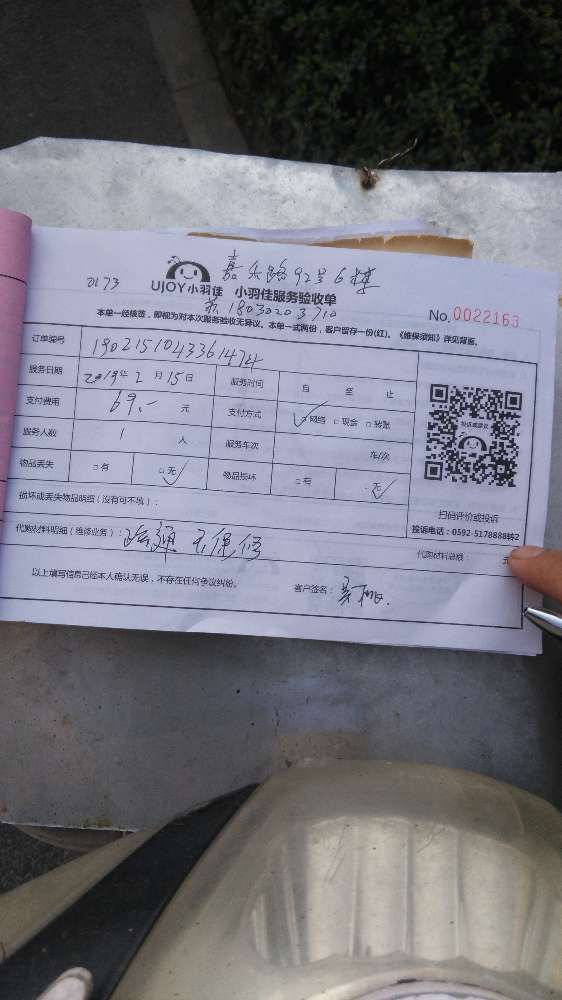 嘉乐路92号6楼
0173 UJOY小羽佳 小羽佳服务验收单
18030203710
No.0022163
本单一经核签，即视为对本次服务验收无异议。本单一式两份，客户留存一份(红)。《维保须知》详见背面。
订单编号 190215104336
服务日期 2019年2月15日 服务时间 自 至 止
支付费用 69.- 元 支付方式 网络 现金 转账
服务人数 1 人 服务车次 车/次
物品丢失 有 无 物品损坏 有 无
损坏或丢失物品明细（没有可不填）：
扫码评价或投诉
投诉电话：0592-5178888转2
代购材料明细（维修业务）： 疏通 不保修
代购材料总额： 元
以上填写信息已经本人确认无误，不存在任何争议纠纷。 客户签名：